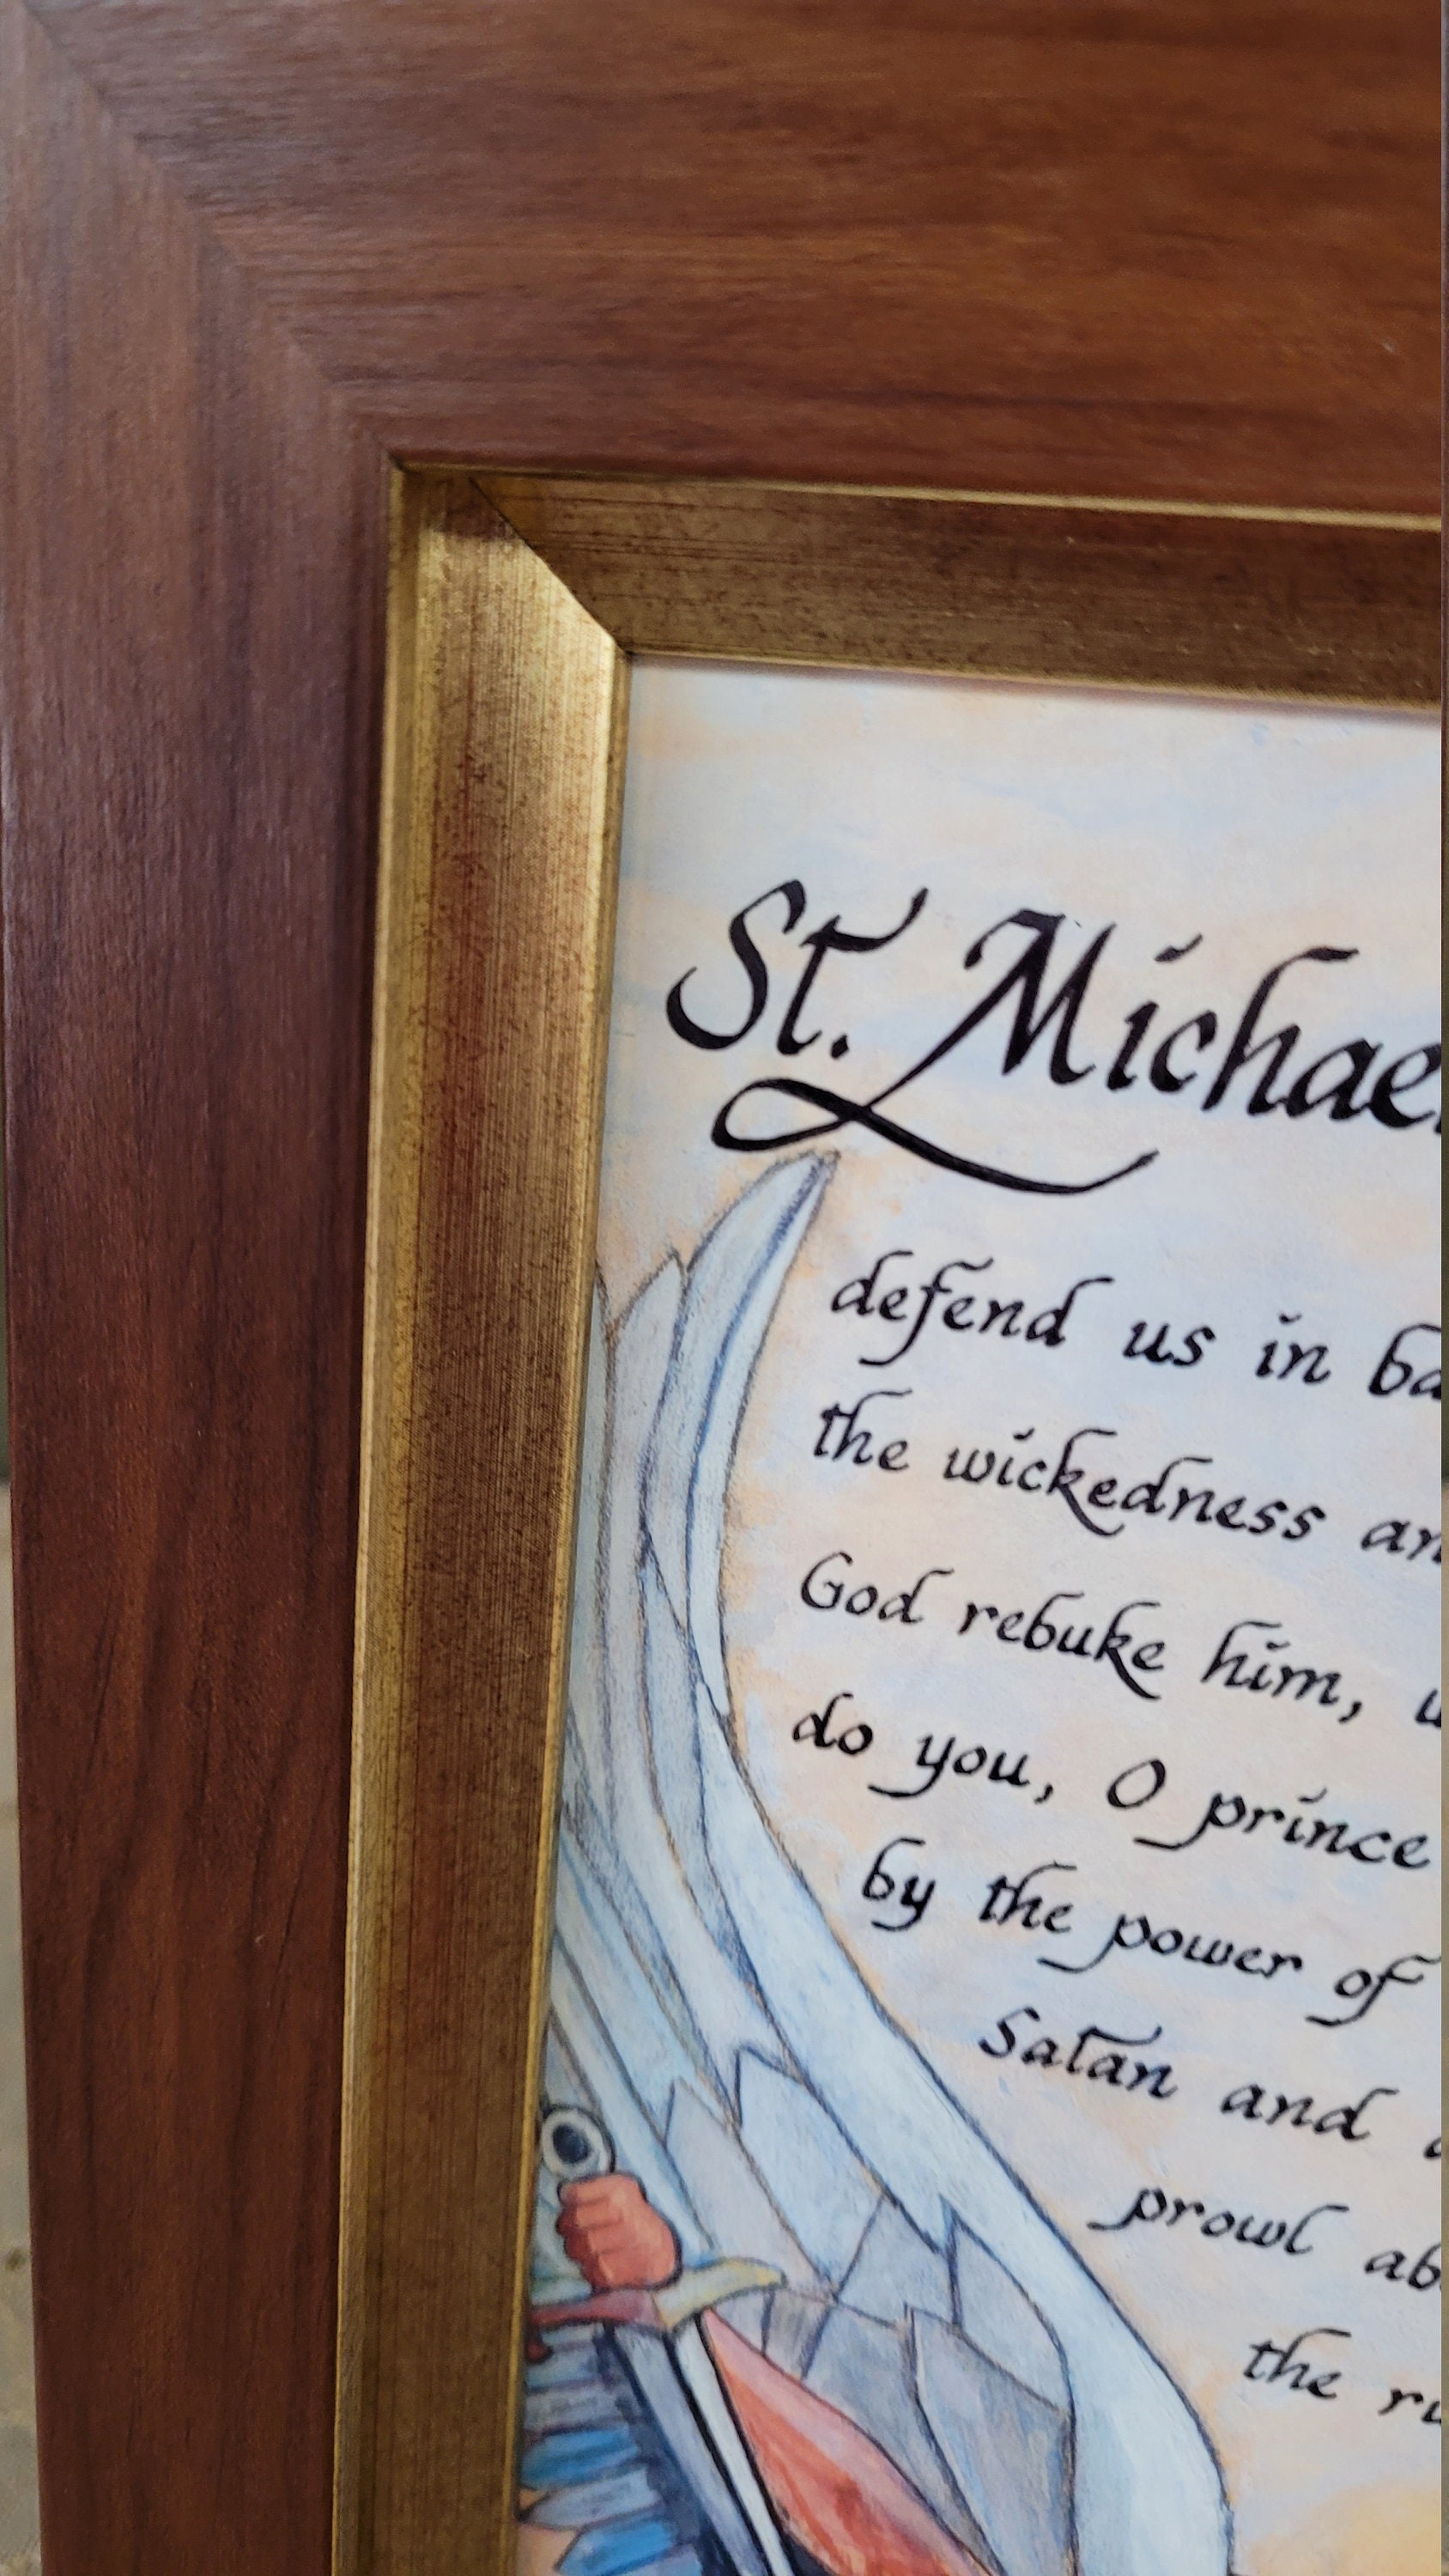 St. Michae
defend us in ba
the wickedness an
God rebuke him,
do you, O prince
by the power of
Satan and
prowl ab
the ru